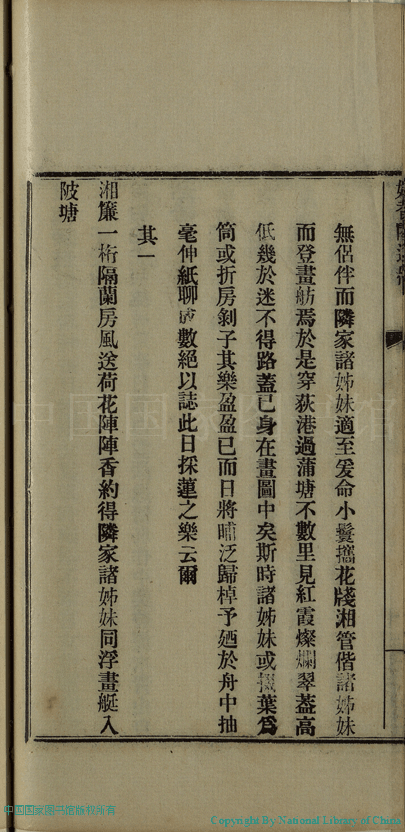 無侶伴而隣家諸姊妹適至爰命小鬟攜花牋湘管偕諸姊妹
而登畫舫焉於是穿荻港過蒲塘不數里見紅霞燦爛翠葢高
低幾於迷不得路蓋已身在畫圖中矣斯時諸姊妹或掇葉爲
筒或折房剝子其樂盈盈已而日將晡泛歸棹予廼於舟中抽
毫伸紙聊成數絕以誌此日採蓮之樂云爾
其一
湘簾一桁隔蘭房風送荷花陣陣香約得隣家諸姊妹同浮畫艇入
陂塘
中国国家图书馆版权所有
Copyright By National Library of China